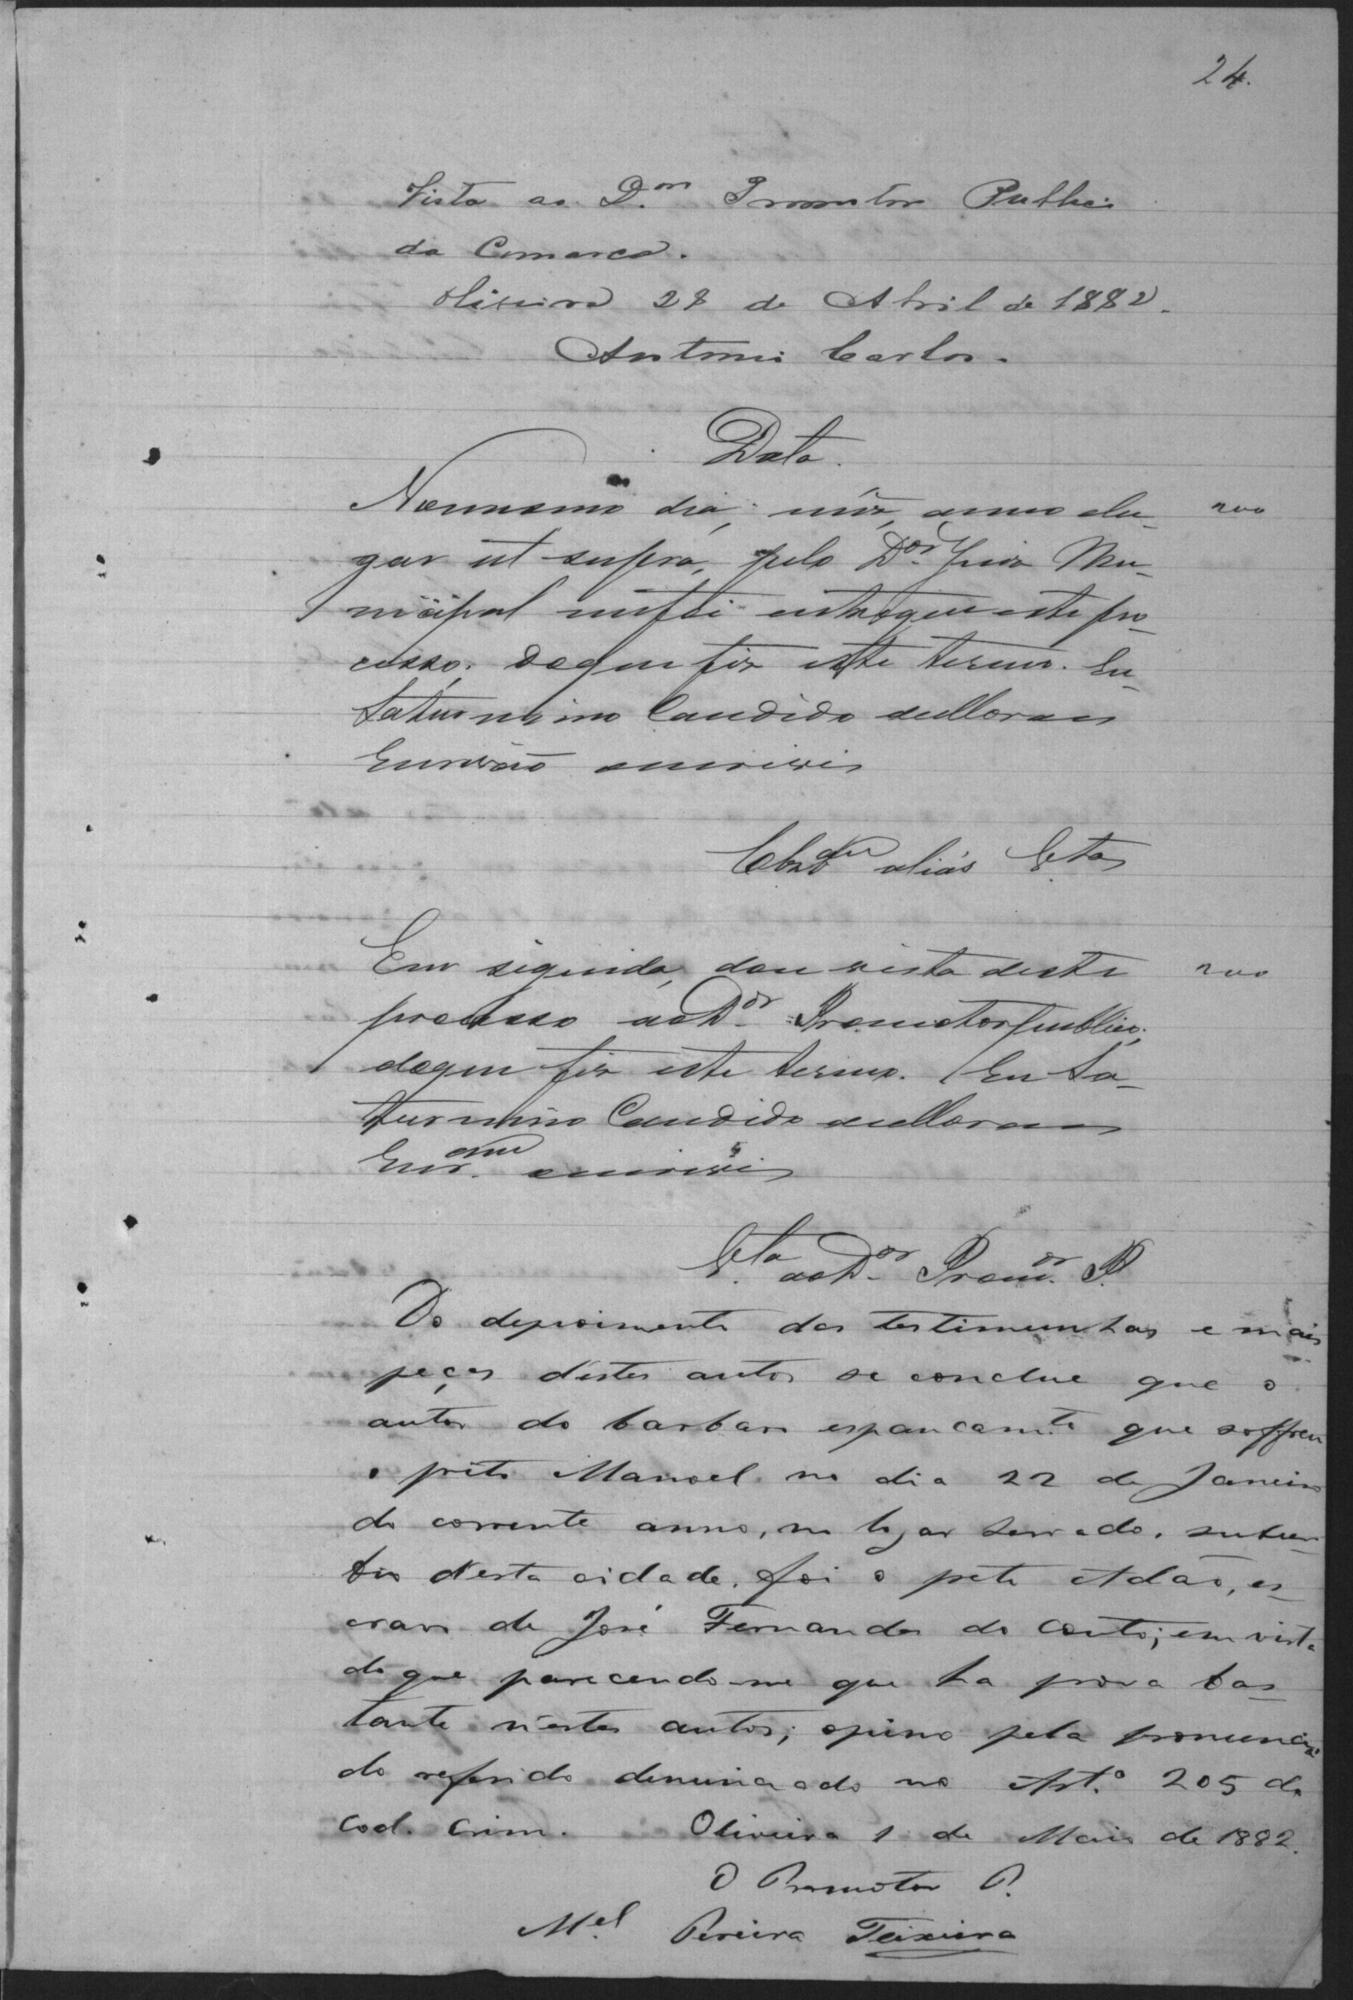 24.
Vista ao D.or Promotor Publico
da Comarca.
Oliveira 28 de Abril de 1882.
Antonio Carlos.
Data.
No mesmo dia, mez, anno e lu-
gar ut supra, pelo Dor. Juiz Mu-
nicipal me foi entregue este pro-
cesso; do que fiz este termo. Eu
Saturnino Candido de Moraes
Escrivão escrevi
200
Clzão alias Vta
Em seguida, dou vista deste
processo ao Dor. Promotor publico;
do que fiz este termo. Eu Sa-
turnino Candido de Moraes
escrevi
200
Vta ao Dor. Promor. P.
Do depoimento das testimunhas e mais
peças destes autos se conclue que o
autor do barbaro espancamto. que soffreu
o preto Manoel no dia 22 de Janeiro
do corrente anno, no logar Serrado, subur-
bio desta cidade, foi o preto Adão, es-
cravo de José Fernandes do Couto; em vista
do que parecendo-me que ha prova bas-
tante n'estes autos; opino pela pronuncia
do referido denunciado no Art.o 205 do
Cod. Crim. Oliveira 1 de Maio de 1882.
O Promotor P.
Mel. Pereira Teixeira